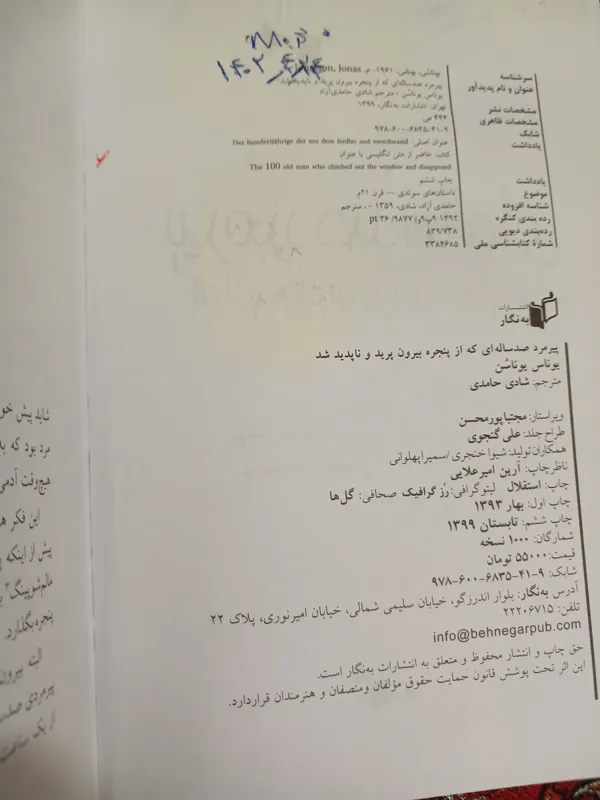 M.F
۱۴۰۲
سرشناسه
یوناسُن، یوناس، ۱۹۶۱- م. Jonas
عنوان و نام پدیدآور
پیرمرد صدساله‌ای که از پنجره بیرون پرید و ناپدید شد
یوناس یوناسُن ؛ مترجم شادی حامدی‌آزاد
مشخصات نشر
تهران: انتشارات به‌نگار، ۱۳۹۹.
مشخصات ظاهری
۴۴۴ ص.
شابک
۹۷۸-۶۰۰-۶۸۳۵-۴۱-۹
یادداشت
عنوان اصلی: Der hunderdjährige der aus dem fenster and verschwand
کتاب حاضر از متن انگلیسی با عنوان
The 100 old man who climbed out the window and disappeared
یادداشت
چاپ ششم
موضوع
داستان‌های سوئدی — قرن ۲۱م.
شناسه افزوده
حامدی آزاد، شادی، ۱۳۵۹ - ، مترجم
رده بندی کنگره
۱۳۹۲ ۹پ۹و/ ۹۸۷۷/ ۲۶ pt
رده‌بندی دیویی
۸۳۹/۷۳۸
شمارهٔ کتابشناسی ملی
۳۳۸۴۶۸۵
انتشارات
به‌نگار
پیرمرد صدساله‌ای که از پنجره بیرون پرید و ناپدید شد
یوناس یوناسُن
مترجم: شادی حامدی
ویراستار: مجتبا پورمحسن
طراح جلد: علی گنجوی
همکاران تولید: شیوا خنجری /سمیرا پهلوانی
ناظر چاپ: آرین امیرعلایی
چاپ: استقلال لیتوگرافی: رُز گرافیک صحافی: گل‌ها
چاپ اول: بهار ۱۳۹۳
چاپ ششم: تابستان ۱۳۹۹
شمارگان: ۱۰۰۰ نسخه
قیمت: ۵۵۰۰۰ تومان
شابک: ۹-۴۱-۶۸۳۵-۶۰۰-۹۷۸
آدرس به‌نگار: بلوار اندرزگو، خیابان سلیمی شمالی، خیابان امیرنوری، پلاک ۲۲
تلفن: ۲۲۲۰۶۷۱۵
info@behnegarpub.com
حق چاپ و انتشار محفوظ و متعلق به انتشارات به‌نگار است.
این اثر تحت پوشش قانون حمایت حقوق مؤلفان ومنصفان و هنرمندان قراردارد.
شاید پیش خو
مرد بود که بل
هیچ‌وقت آدمی
این فکر هم
پیش از اینکه
مالم‌شوپینگ
پنجره بگذارد.
البته بیرون
پیرمردی صدس
از یک ساعت